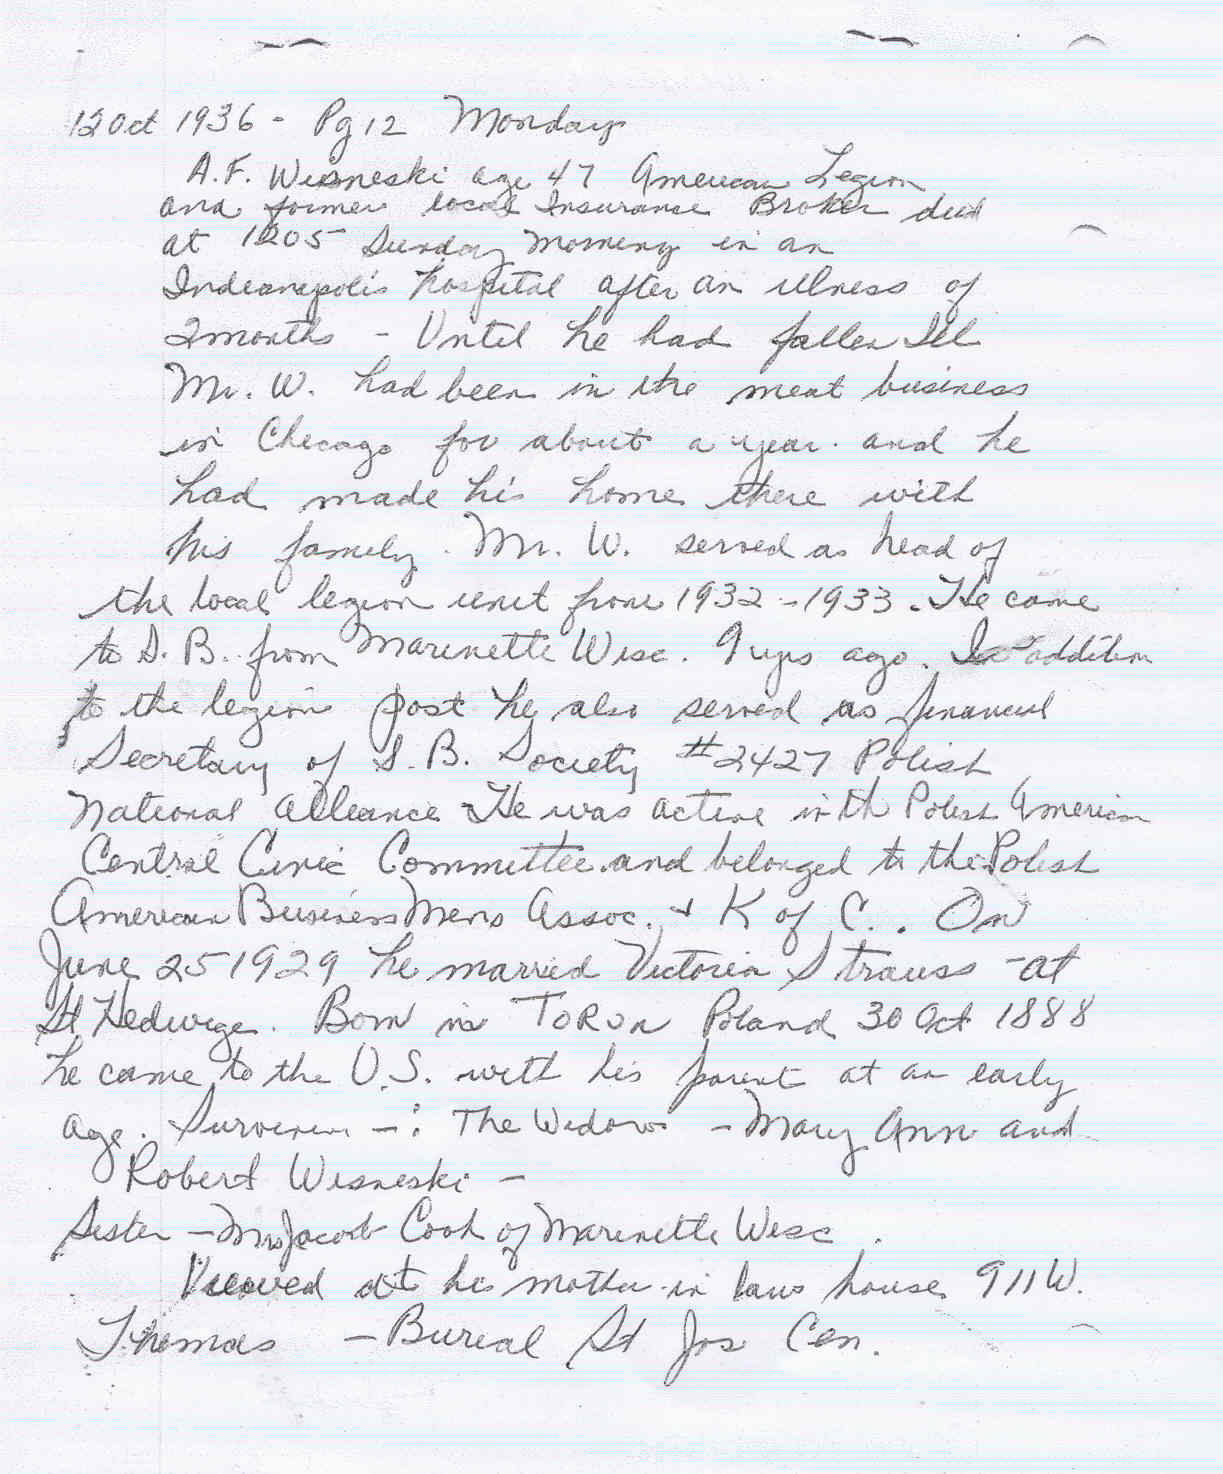 12 Oct 1936 - Pg 12 Monday
A.F. Wisneski age 47 American Legion
and former local Insurance Broker died
at 1205 Sunday Morning in an
Indianapolis hospital after an illness of
2 months - Until he had fallen Ill
Mr. W. had been in the meat business
in Chicago for about a year. and he
had made his home there with
his family. Mr. W. served as head of
the local legion unit from 1932 - 1933. He came
to S. B. from Marinette Wisc. 9 yrs ago. In addition
to the legion post he also served as financial
Secretary of S. B. Society #2427 Polish
National Alliance He was active in th Polish American
Central Civic Committee and belonged to the Polish
American Business Mens Assoc. + K of C.. On
June 25 1929 he married Victoria Strauss - at
St Hedwige. Born in Torun Poland 30 Oct 1888
he came to the U.S. with his parent at an early
age. Survivers -: The Widow - Mary Ann and
Robert Wisneski -
Sister - Mrs Jacob Cook of Marinette Wisc.
Viewed at his mother-in laws house 911 W.
Thomas - Burial St Jos Cem.